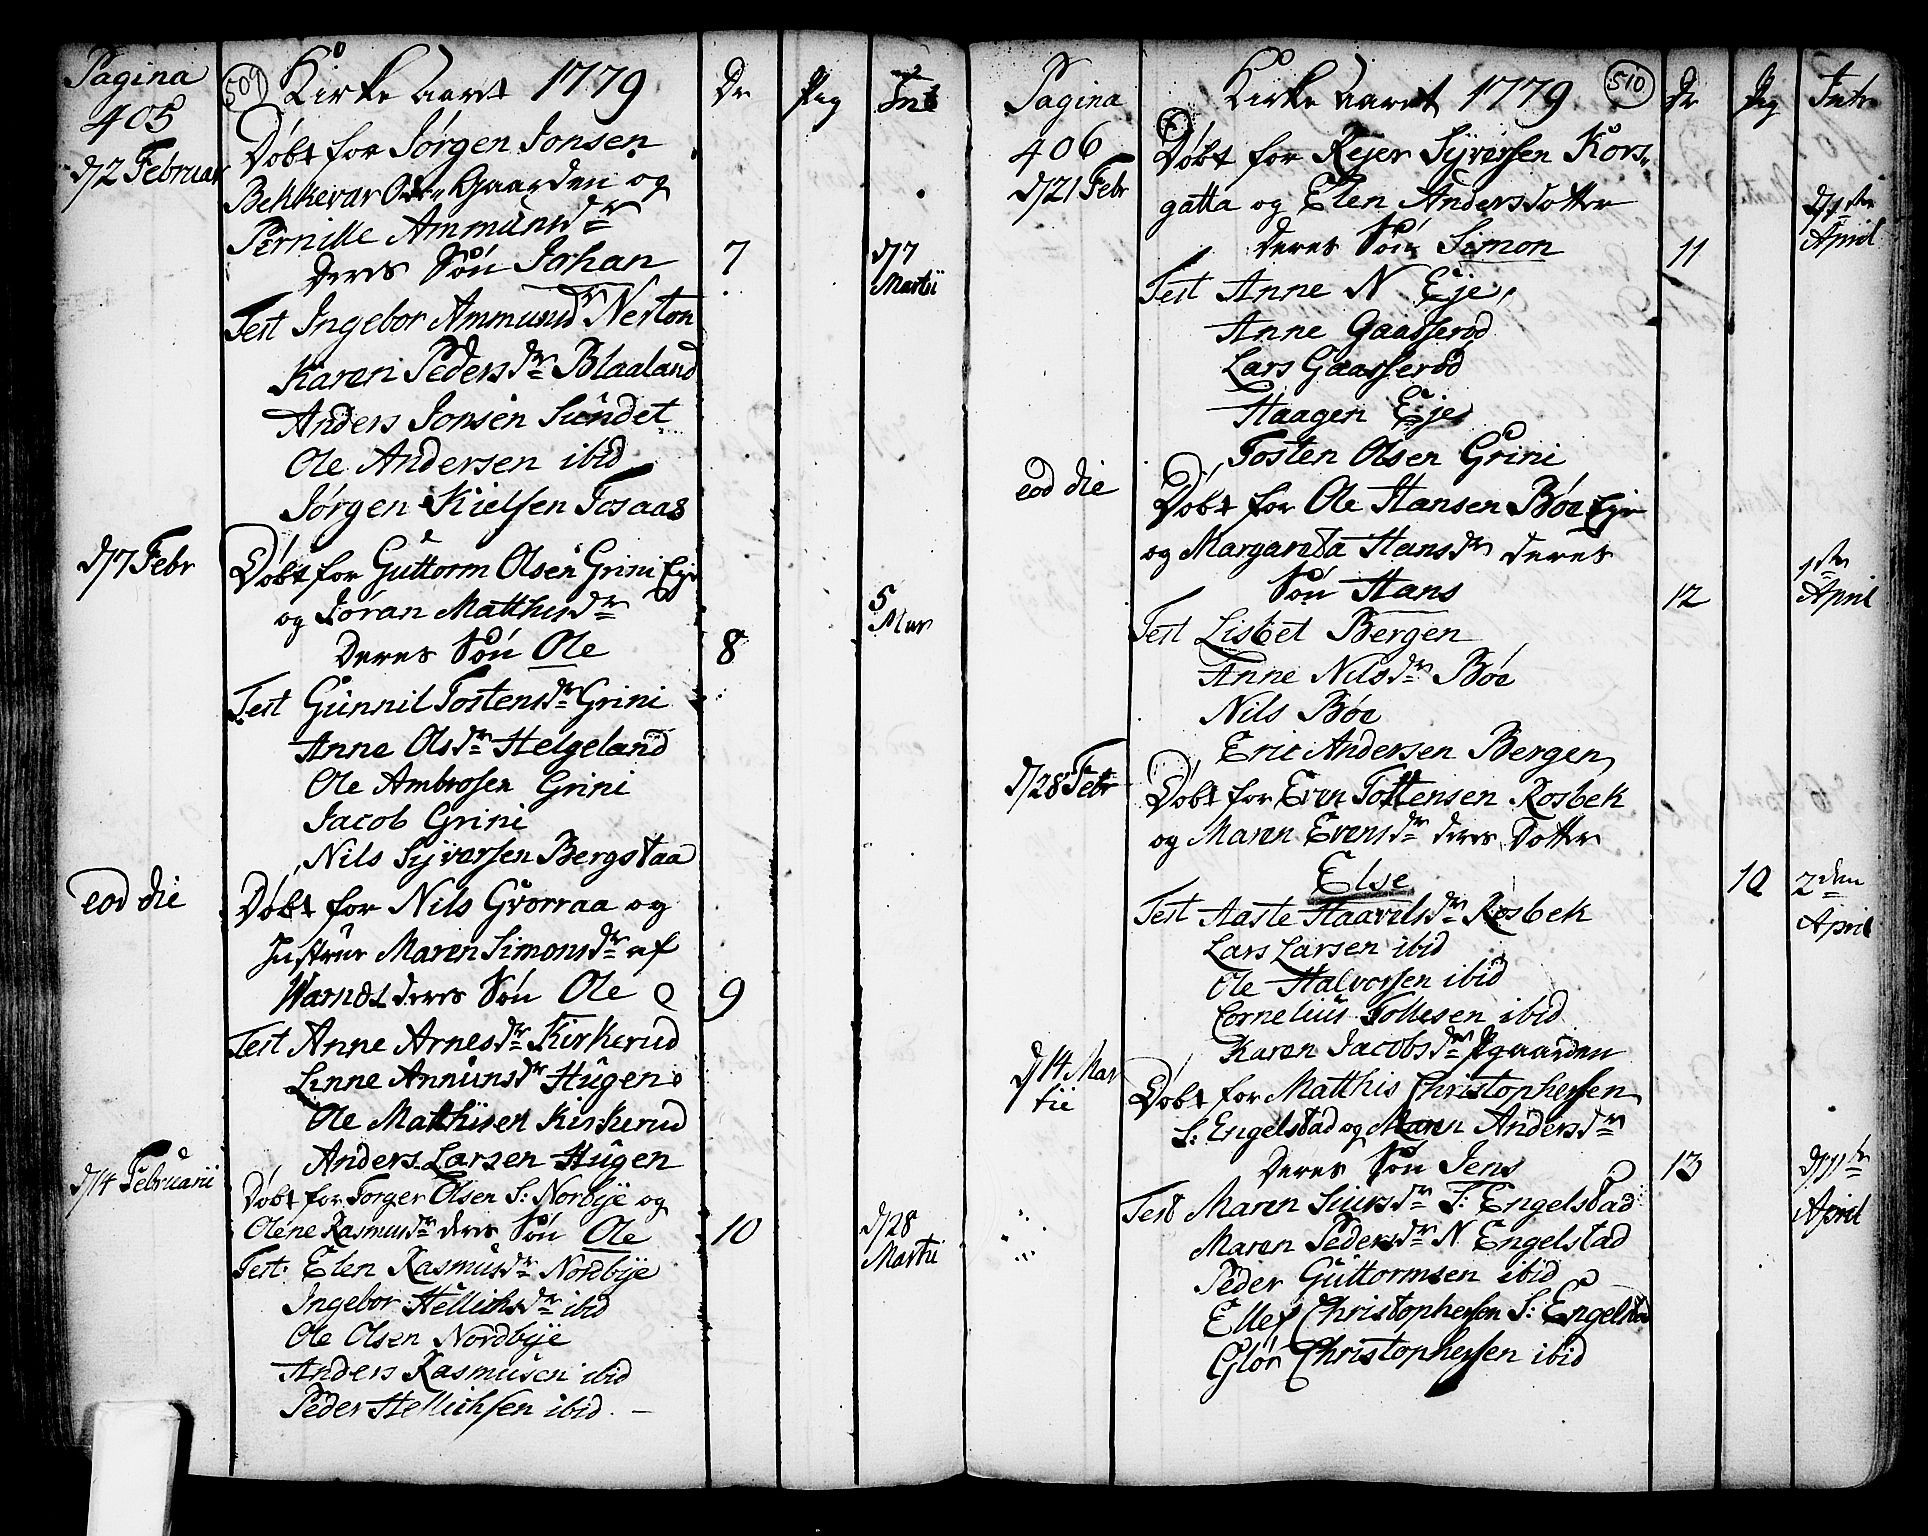 Pagina
405
509
Kirke aaret 1779
Dr
Pig
Int
d/2 Februar
Døbt for Jørgen Jonsen
Bekkevar Gaarden og
Pernille Ammunsdr
deres Søn Johan
7
d/7
Martii
Test Ingebor Ammunddr Nerton
Karen Pedersdr Blaaland
Anders Jonsen Sundet
Ole Andersen ibid
Jørgen Kielsen Tosaas
d/7 Febr
Døbt for Guttorm Olsen Grini Eje
og Joran Matthisdr
deres Søn Ole
8
5
Mar
Test Gunnil Tostensdr Grini
Anne Olsdr Helgeland
Ole Ambrosen Grini
Jacob Grini
Nils Syversen Bergstaa
eod die
Døbt for Nils Grorraa og
Hustrue Maren Simonsdr af
deres Søn Ole
9
Test Anne Arnesdr Kirkerud
Linne Annunsdr Hugen
Ole Matthisen Kirkerud
Anders Larsen Hugen
d/14 Februarii
Døbt for Torger Olsen S: Norbye og
Olene Rasmusdr deres Søn Ole
10
d/28
Martii
Test: Elen Rasmusdr Nordbye
Ingebor Hellichsdr ibid
Ole Olsen Nordbye
Anders Rasmusen ibid
Peder Hellichsen ibid. —
Pagina
406
Kirke aaret 1779
510
Dr
Pig
Intr
d/21 Febr
Døbt for Rejer Syversen Kors„
gatta og Elen Andersdotter
deres Søn Simon
11
d/1ste
April
Test Anne N Eje
Anne Gaasserød
Lars Gaasserød
Haagen Eje
Tosten Olsen Grini
eod die
Døbt for Ole Hansen Bøe Eje
og Margareta Hansdr deres
Søn Hans
12
1ste
April
Test Lisbet Bergen
Anne Nilsdr Bøe
Nils Bøe
Eric Andersen Bergen
d/28 Febr
Døbt for Even Tostensen Rosbek
og Maren Evensdr deres Dotter
Else
10
2den
April
Test Aaste Haavelsdr Rosbek
Lars Larsen ibid
Ole Halvorsen ibid
Cornelius Tollesen ibid
Karen Jacobsdr Pgaarden
d/14 Mar
tii
Døbt for Matthis Christophersen
S: Engelstad og Maren Andersdr
Deres Søn Jens
13
d/11te
April
Test Maren Siursdr S: Engelstad
Maren Pedersdr N Engelstad
Peder Guttormsen ibid
Ellef Christophersen S: Engelstad
Glør Christophersen ibid